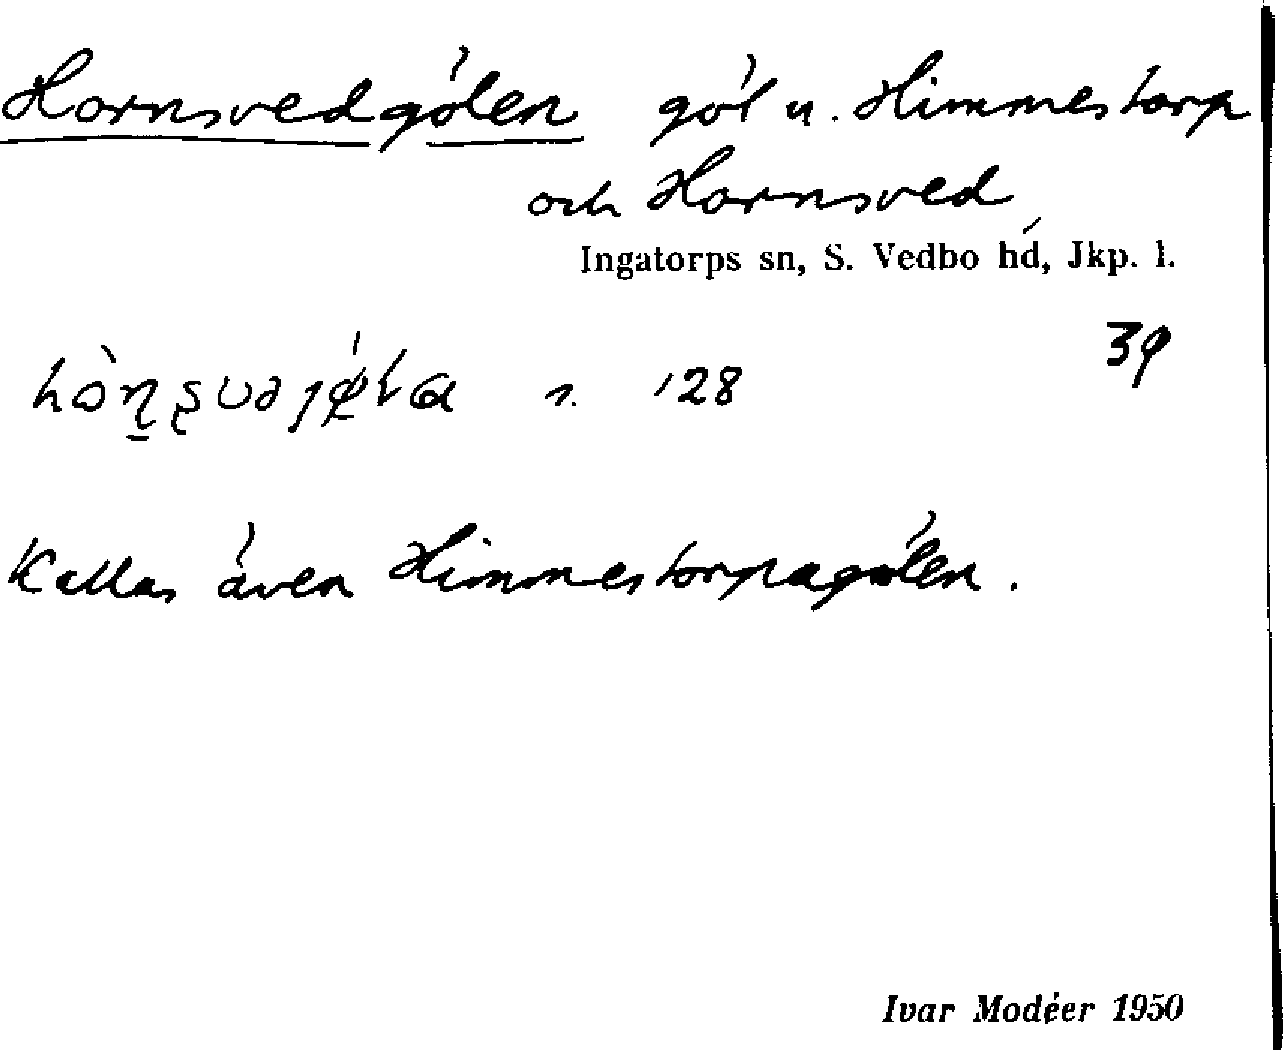 Hornsvedgölen göl u. Himmestorp
och Hornsved
Ingatorps sn, S. Vedbo hd, Jkp. l.
39
s. 128
Kallas även Himmestorpagölen.
Ivar Modéer 1950